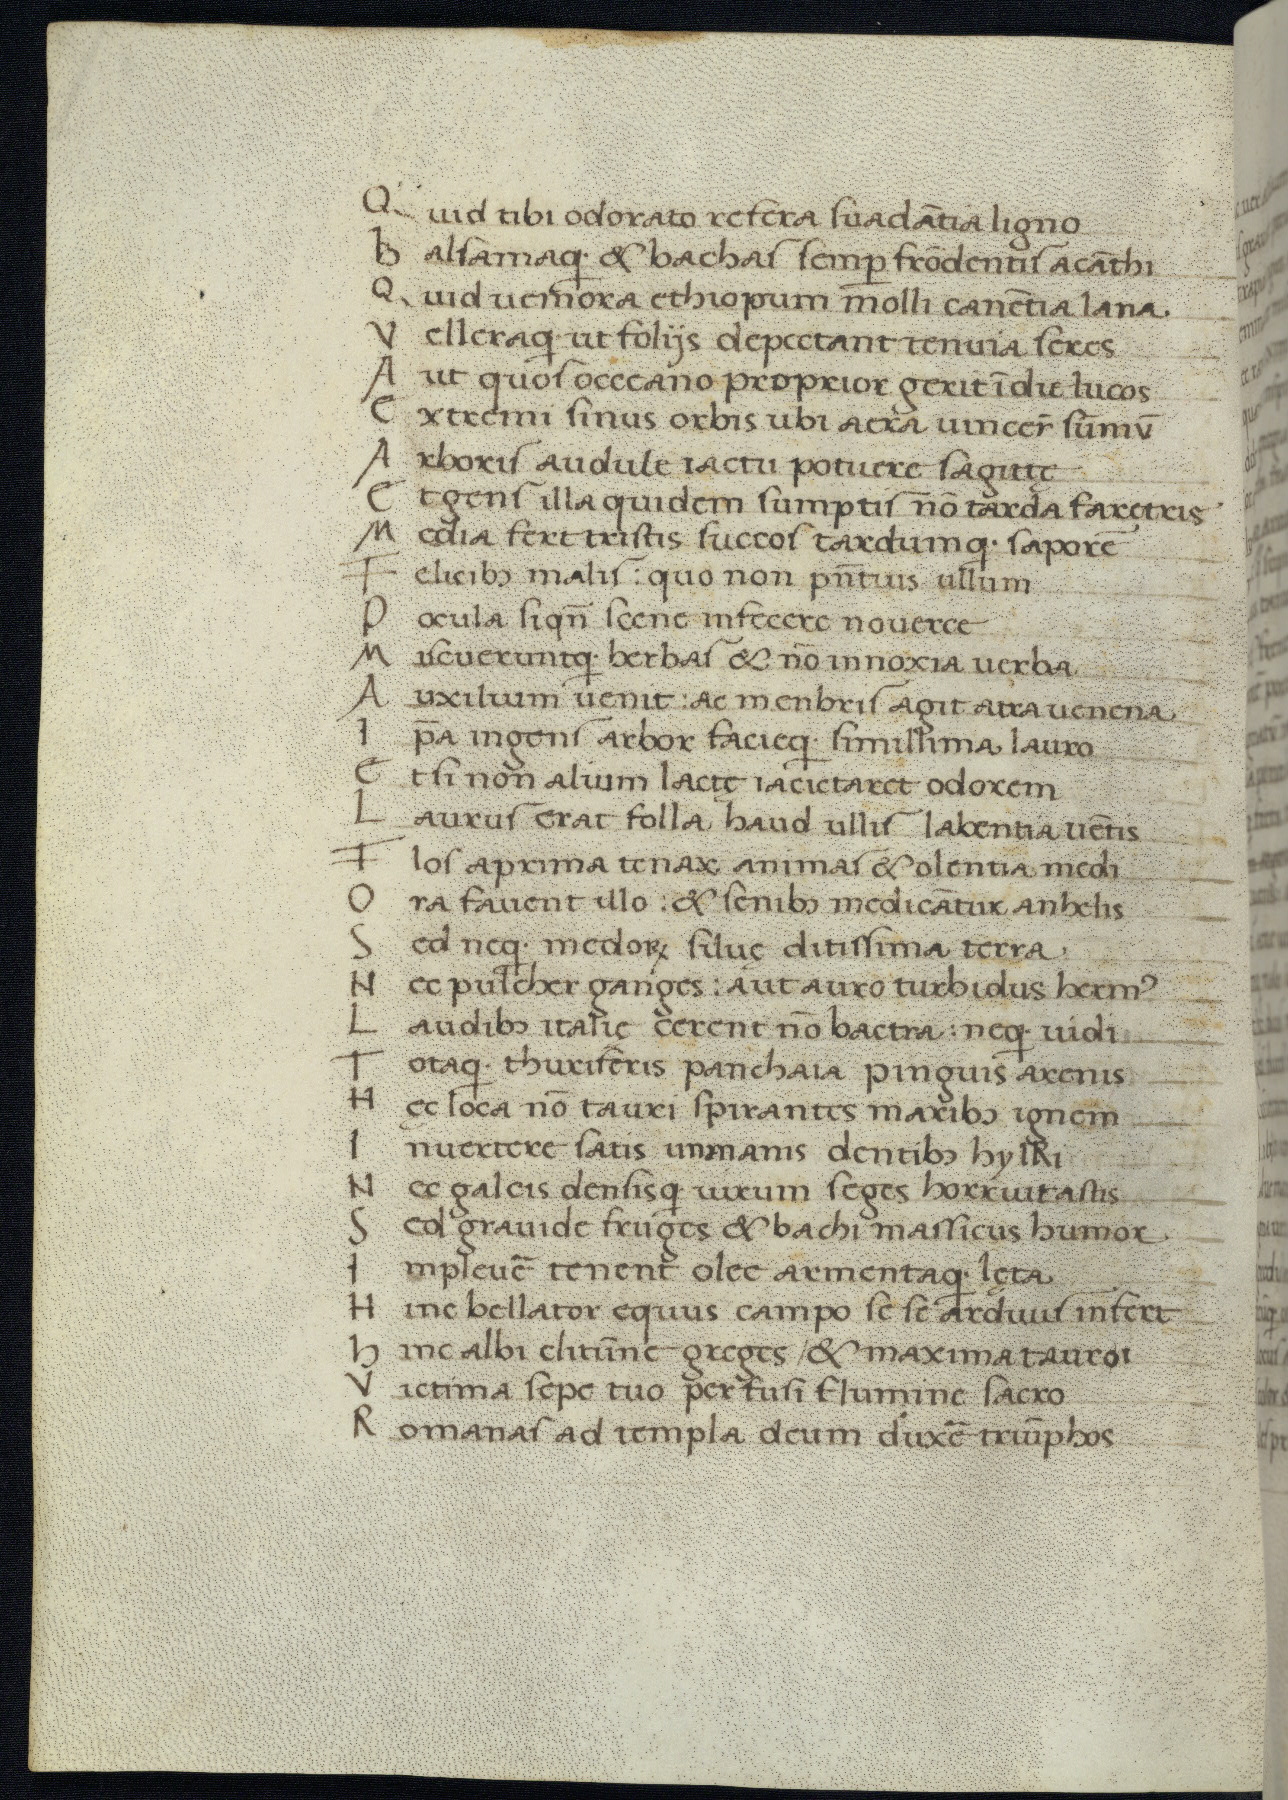 Quid tibi odorato refera suadātia ligno
Balsamaq; & bachas semp frōdentis acāthi
Quid uemora ethiopum molli canētia lana.
Velleraq; ut folijs depectant tenuia seres
Aut quos occeano proprior gerit īdie lucos
Extremi sinus orbis ubi aera uincer̄ sūmū
Arboris audule iactu potuere sagittę
Et gens illa quidem sumptis nō tarda faretris
Media fert tristis succos tardumq; saporē
Felicibɔ malis: quo non pn̄tius ullum
Pocula siqn̄ scene infecere nouerce
Miscueruntq; herbas & nō innoxia uerba
Auxilium uenit: ac menbris agit atra uenena
Ip̄a ingens arbor facieq; simillima lauro
Et si non alium lactę iacietaret odorem
Laurus erat folla haud ullis labentia uētis
Flos aprima tenax animas & olentia medi
Ora fauent illo: & senibɔ medicātur anhelis
Sed neq; medoꝝ siluę ditissima terra
Nec pulcher ganges: aut auro turbidus hermꝰ
Laudibɔ italię cerent nō bactra: neq; uidi
Totaq; thuriferis panchaia pinguis arenis
Hęc loca nō tauri spirantes maribɔ ignem
Inuertere satis inmanis dentibɔ hydri
Nec galeis densisq; uirum seges horruit astis
Sed grauide fruges & bachi massicus humor
Impleuē tenent olee armentaq; lęta
Hinc bellator equus campo se se arduus infert
Hinc albi clitūne greges / & maxima tauroi
Victima sepe tuo perfusi flumine sacro
Romanas ad templa deum duxē triūphos